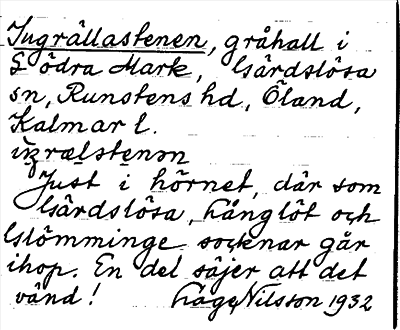 Ingrällastenen, gråhall i
Södra Mark, Gärdslösa
sn, Runstens hd, Öland,
Kalmar l.
Just i hörnet, där som
Gärdslösa, Långlöt och
Glömminge socknar går
ihop. En del säjer att det
vänd! Låge Nilsson 1932